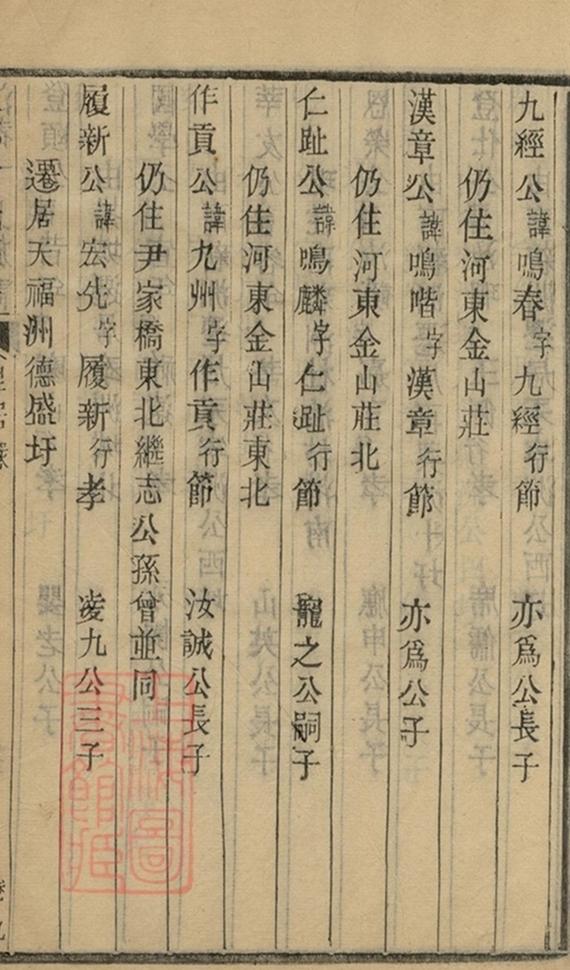 九經公諱鳴春字九經行節　亦爲公長子
仍住河東金山莊
漢章公諱鳴喈字漢章行節　亦爲公子
仍住河東金山莊北
仁趾公諱鳴麟字仁趾行節　寵之公嗣子
仍住河東金山莊東北
作貢公諱九州字作貢行節　汝誠公長子
仍住尹家橋東北繼志公孫曾並同
履新公諱宏先字履新行孝　凌九公三子
遷居天福洲德盛圩